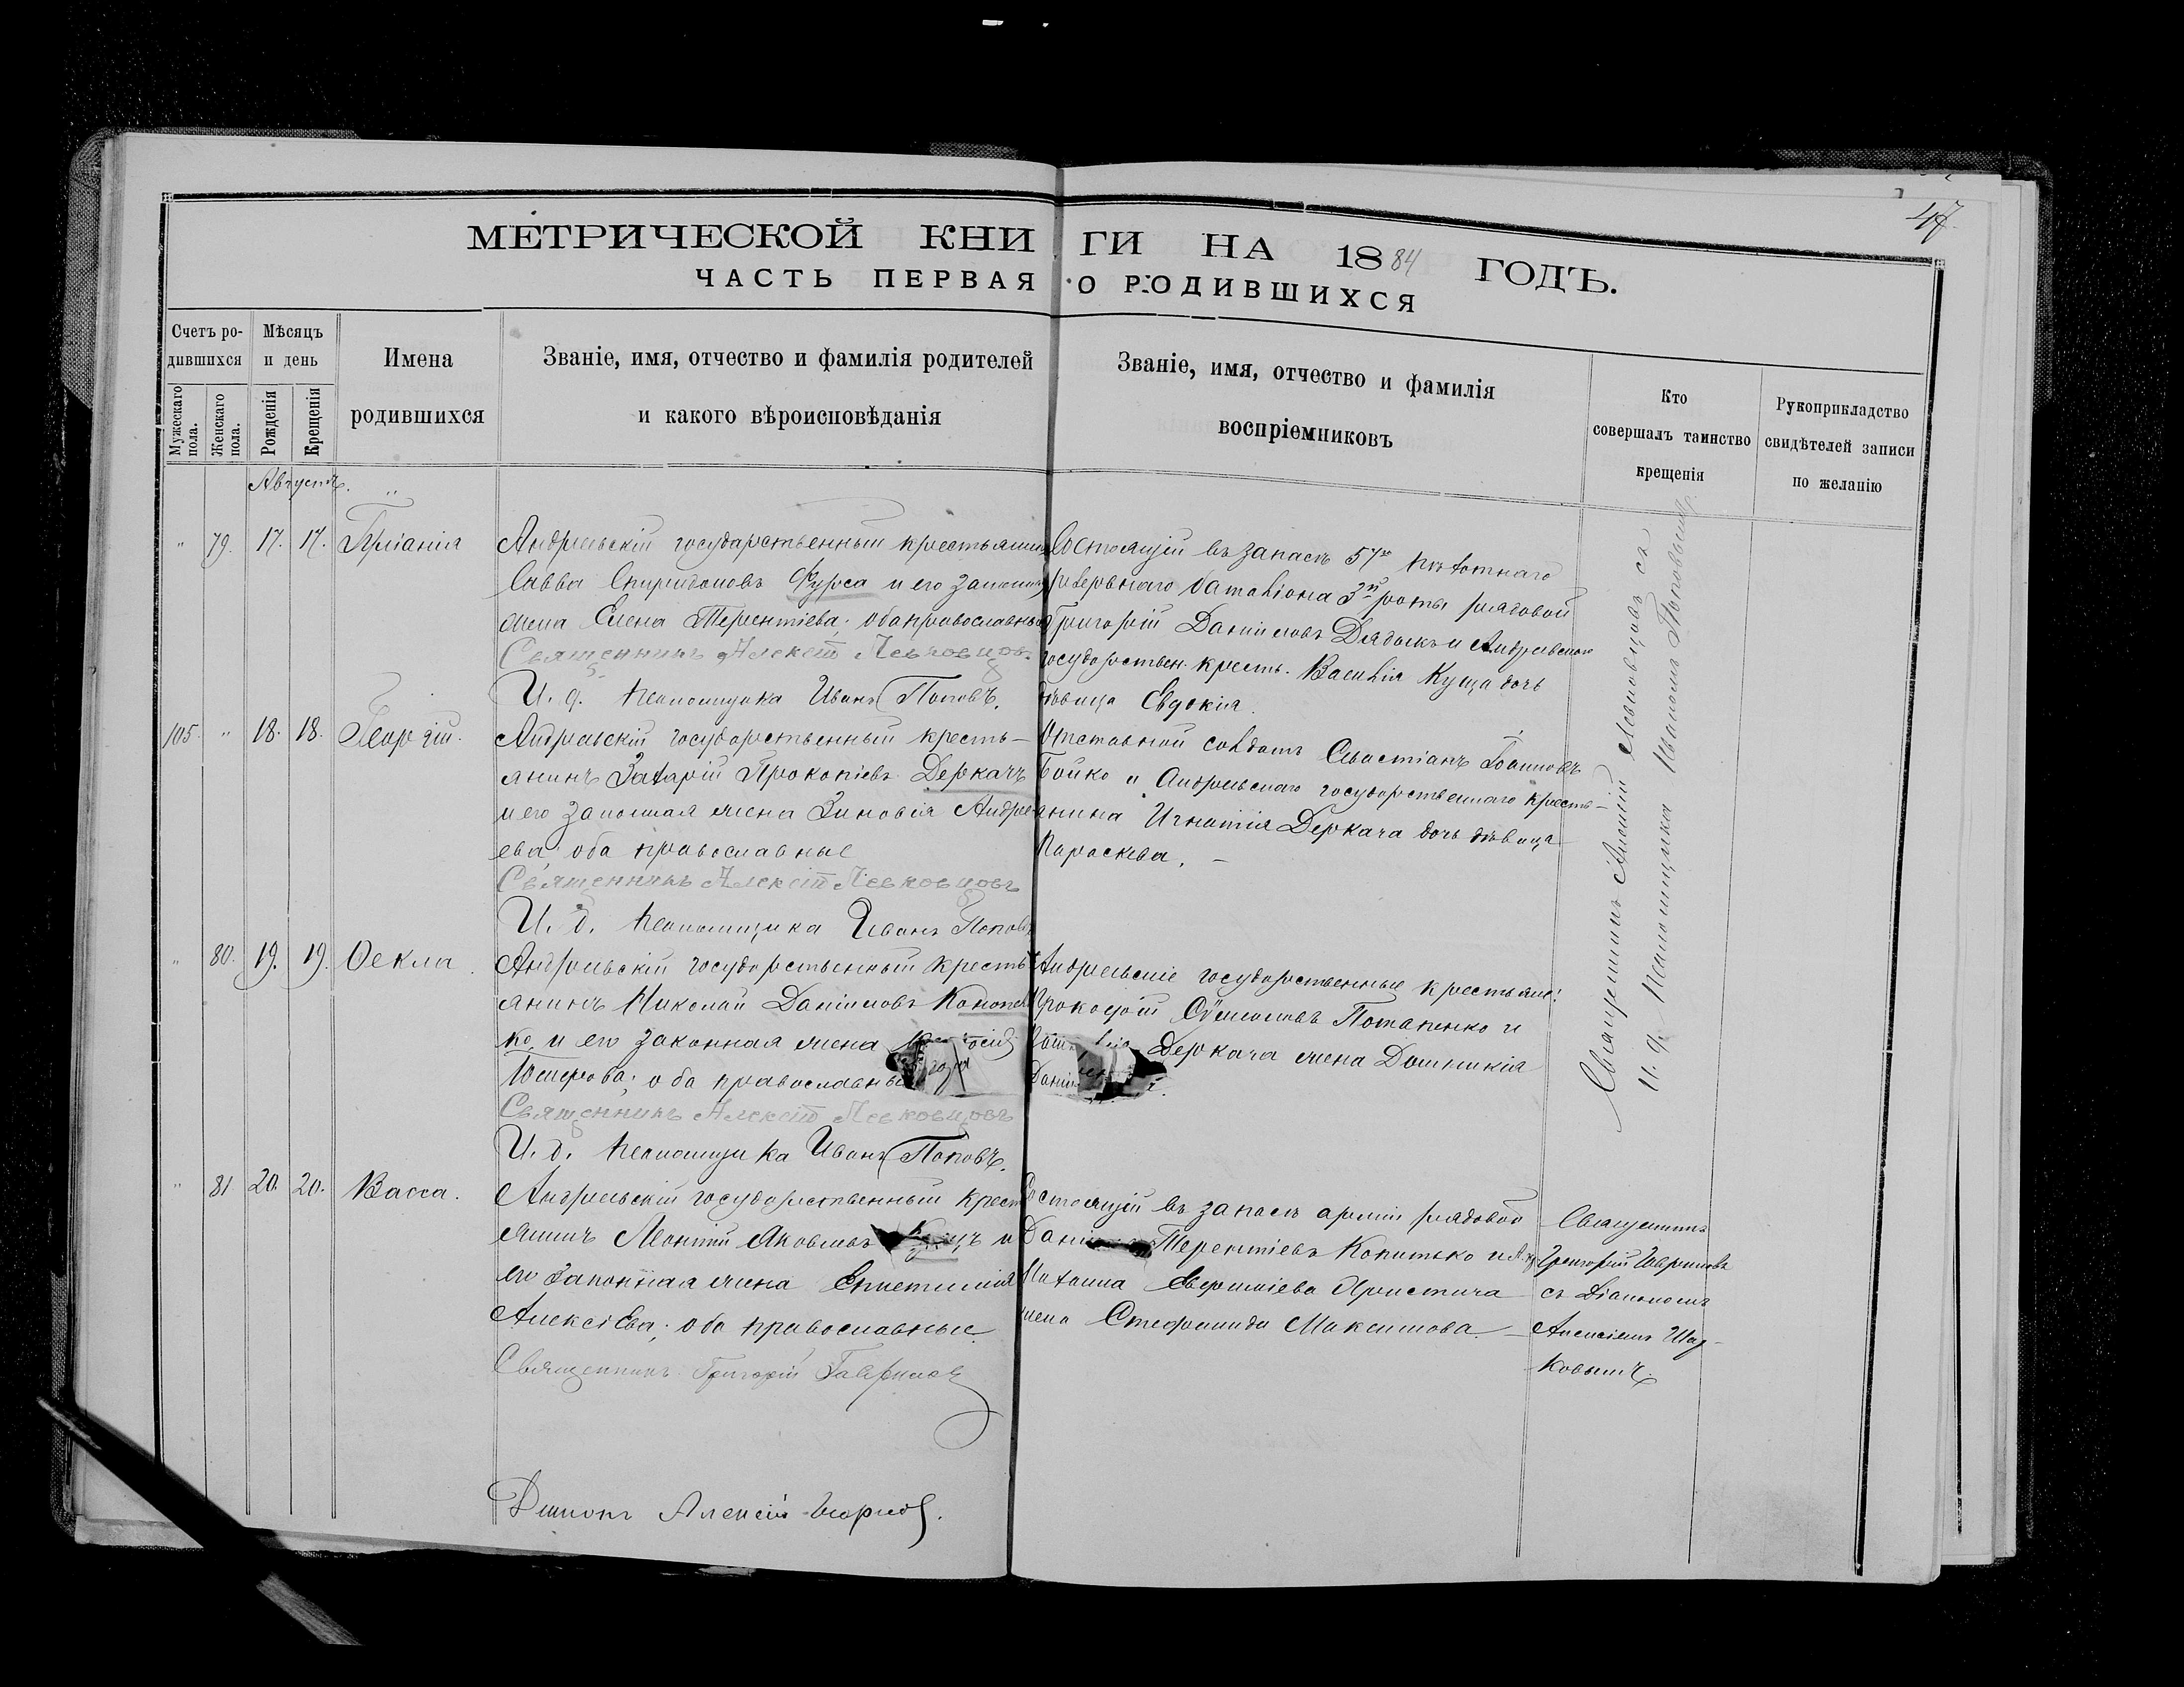 47
МЕТРИЧЕСКОЙ КНИГИ НА 1884 ГОДЪ.
ЧАСТЬ ПЕРВАЯ О РОДИВШИХСЯ
Счетъ ро-
дившихся
Мужескаго пола.
Женскаго пола.
Мѣсяцъ
и день
Рожденія
Крещенія
Имена
родившихся
Званіе, имя, отчество и фамилія родителей
и какого вѣроисповѣданія
Званіе, имя, отчество и фамилія
воспріемниковъ
Кто
совершалъ таинство
крещенія
Рукоприкладство
свидѣтелей записи
по желанію
Августъ.
" 79. 17. 17.
Андреевскій государственный крестьянинъ
Савва Спиридоновъ Фурса и его законная
жена Елена Терентіева; оба православные
Священникъ Алексій Левковцовъ
И. д. псаломщика Иванъ Поповъ.
Состоящій въ запасѣ 57го пѣхотнаго
резервнаго баталіона 3й роты рядовой
Григорій Даніиловъ и Андреевскаго
государствен. кресть. Василія Куща дочь
дѣвица Евдокія.
105. " 18. 18. Георгій.
Андреевскій государственный кресть-
янинъ Захарій Прокопіевъ Деркачъ
и его законная жена Зиновія Андре-
ева; оба православные
Священникъ Алексій Левковцовъ
И. д. псаломщика Иванъ Поповъ
Отставной солдатъ Севастіанъ Іоанновъ
Бойко и Андреевскаго государственнаго кресть-
янина Игнатія Деркача дочь дѣвица
Параскева. -
" 80. 19. 19. Ѳекла.
Андреевскій государственный кресть-
янинъ Николай Даніиловъ
ко, и его законная жена
оба православные
Священникъ Алексій Левковцовъ
И. д. псаломщика Иванъ Поповъ.
Андреевскіе государственные крестьяне:
Прокофій Потапенко и
Деркача жена Домникія
" 81 20. 20. Васса.
Андреевскій государственный кресть
янинъ Леонтій Яковлевъ и
его законная жена Епистимія
Алексіева; оба православные
Священникъ Григорій Гавриловъ
Діаконъ Алексій
Состоящій въ запасѣ арміи рядовой
Терентіевъ Копитько
жена Стефанида Максимова
Священникъ Алексій Левковцовъ съ
И. д. Псаломщика Иваномъ Поповымъ
Священникъ
Григорій Гавриловъ
съ Діакономъ
Алексіемъ